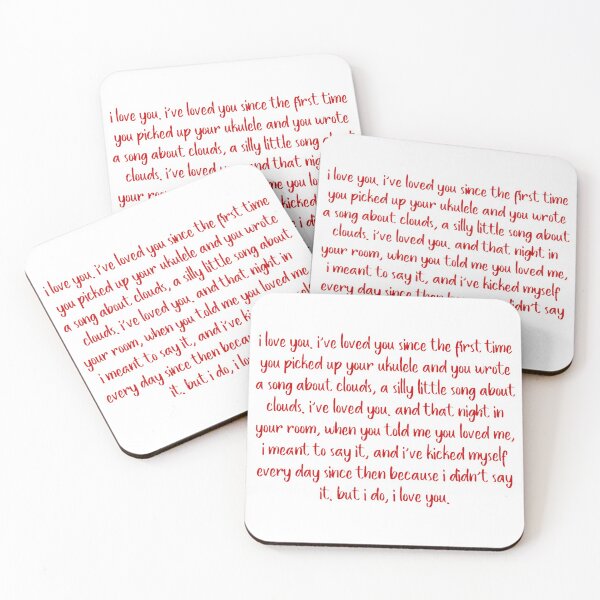 i love you. i've loved you since the first time
you picked up your ukulele and you wrote
a song about clouds, a silly little song
clouds. i've loved you. and that night
your room
me you
kicked
i love you. i've loved you since the first time
you picked up your ukulele and you wrote
a song about clouds, a silly little song about
clouds. i've loved you. and that night in
your room, when you told me you loved me,
i meant to say it, and i've kicked myself
every day since then because i didn't say
i love you. i've loved you since the first time
you picked up your ukulele and you wrote
a song about clouds, a silly little song about
clouds. i've loved you. and that night in
your room, when you told me you loved me,
i meant to say it, and i've
every day since then because
it. but i do, i
i love you. i've loved you since the first time
you picked up your ukulele and you wrote
a song about clouds, a silly little song about
clouds. i've loved you. and that night in
your room, when you told me you loved me,
i meant to say it, and i've kicked myself
every day since then because i didn't say
it. but i do, i love you.